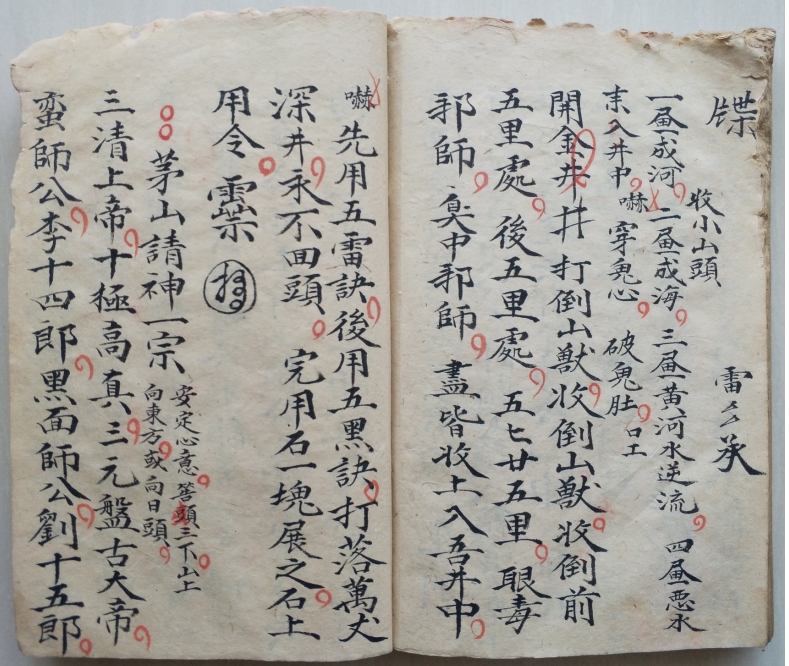 牒 雷公承
收小山頭
一畫成河二畫成海三畫黃河水逆流四畫惡水
來入井中嚇穿鬼心破鬼肚口工
開金井井打倒山獸收倒山獸收倒前
五里處後五里處五七廿五里眼毒
邪師 中邪師盡皆收上入吾井中
嚇先用五雷訣後用五黑訣打落萬丈
深井永不回頭完用石一塊展之石上
用令
茅山請神一宗
安定心意答頭三下山上
向東方或向日頭
三清上帝十極高真三元盤古大帝
蛮師公李十四郎黑面師公劉十五郎